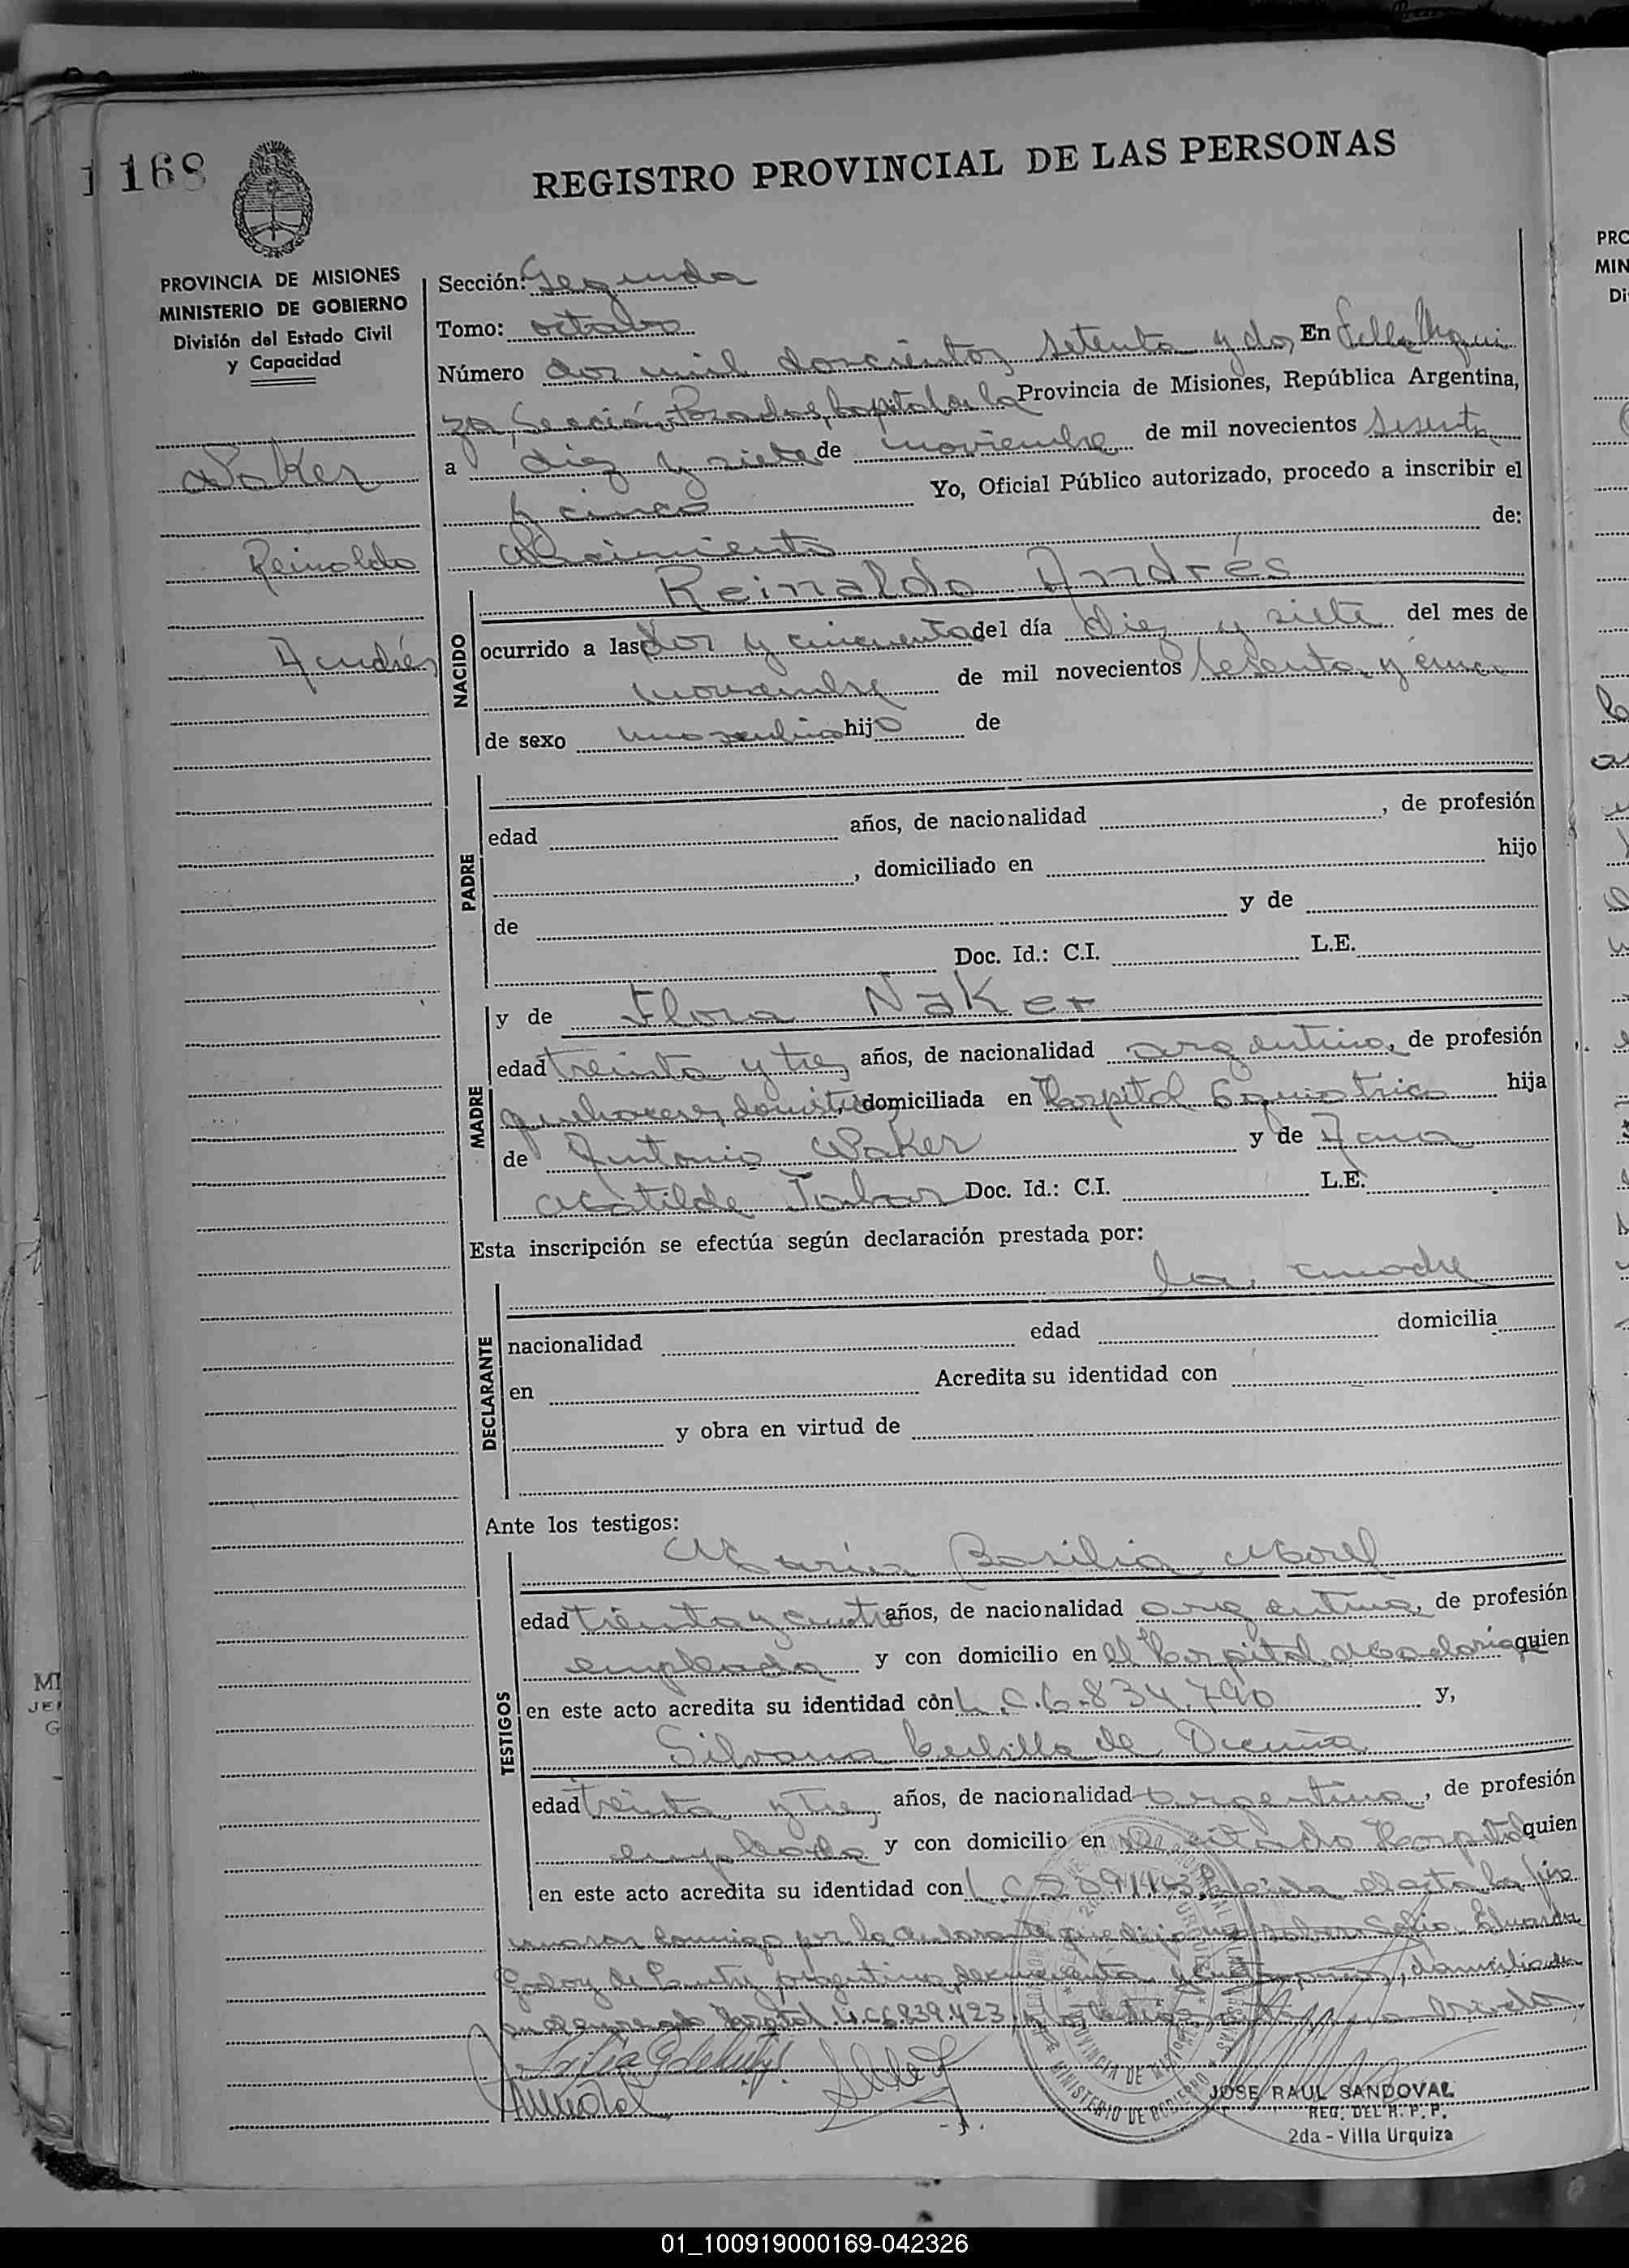 168
REGISTRO PROVINCIAL DE LAS PERSONAS
PROVINCIA DE MISIONES
MINISTERIO DE GOBIERNO
División del Estado Civil
y Capacidad
Sección: Segunda
Tomo: octavo
Número dos mil doscientos setenta y dos En Villa Urqui
za, Sección Posadas, Capital de la Provincia de Misiones, República Argentina,
a diez y siete de noviembre de mil novecientos sesenta
y cinco Yo, Oficial Público autorizado, procedo a inscribir el
Nacimiento de:
Naker
Reinaldo
Andrés
NACIDO
Reinaldo Andrés
ocurrido a las dos y cincuenta del día diez y siete del mes de
noviembre de mil novecientos sesenta y cinco
de sexo masculino hijo de
PADRE
edad años, de nacionalidad , de profesión
, domiciliado en hijo
de y de
Doc. Id.: C.I. L.E.
MADRE
y de Flora Naker
edad treinta y tres años, de nacionalidad argentina, de profesión
quehaceres domésticos, domiciliada en Hospital hija
de Antonio Naker y de Ana
Matilde Doc. Id.: C.I. L.E.
Esta inscripción se efectúa según declaración prestada por:
la madre
DECLARANTE
nacionalidad edad domicilia
en Acredita su identidad con
y obra en virtud de
Ante los testigos:
TESTIGOS
María Basilia Morel
edad treinta y cuatro años, de nacionalidad argentina, de profesión
empleada y con domicilio en el Hospital Madariaga quien
en este acto acredita su identidad con L.C.6.834.790 y,
Silvana de
edad treinta y tres años, de nacionalidad argentina, de profesión
empleada y con domicilio en citado Hospital quien
en este acto acredita su identidad con L.C. leida el acta la fir
conmigo por la declarante que dijo no saber Eduarda
Godoy de argentina, domiciliada
en Hospital L.C.6.839.423
MINISTERIO DE GOBIERNO
PROVINCIA DE MISIONES
JOSE RAUL SANDOVAL
REG. DEL R. P. P.
2da - Villa Urquiza
PRO
MIN
Di
MI
JEF
G
01_100919000169-042326